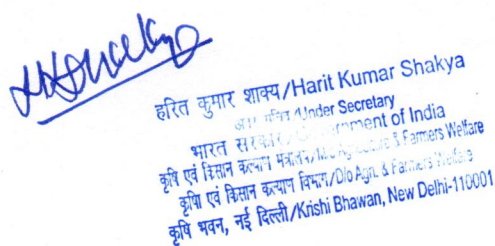 हरित कुमार शाक्य/Harit Kumar Shakya
/Under Secretary
भारत सरकार/Government of India
कृषि एवं किसान कल्याण मंत्रालय/M/o Agriculture & Farmers Welfare
कृषि एवं किसान कल्याण विभाग/D/o Agri. & Farmers Welfare
कृषि भवन, नई दिल्ली/Krishi Bhawan, New Delhi-110001